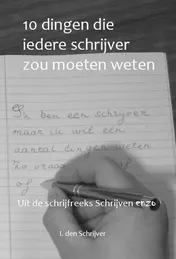 10 dingen die
iedere schrijver
zou moeten weten
Ik ben een Schrijver
maar ik wil een
aantal dingen weten
Zo vraag
of
Uit de schrijfreeks Schrijven enzo
I. den Schrijver